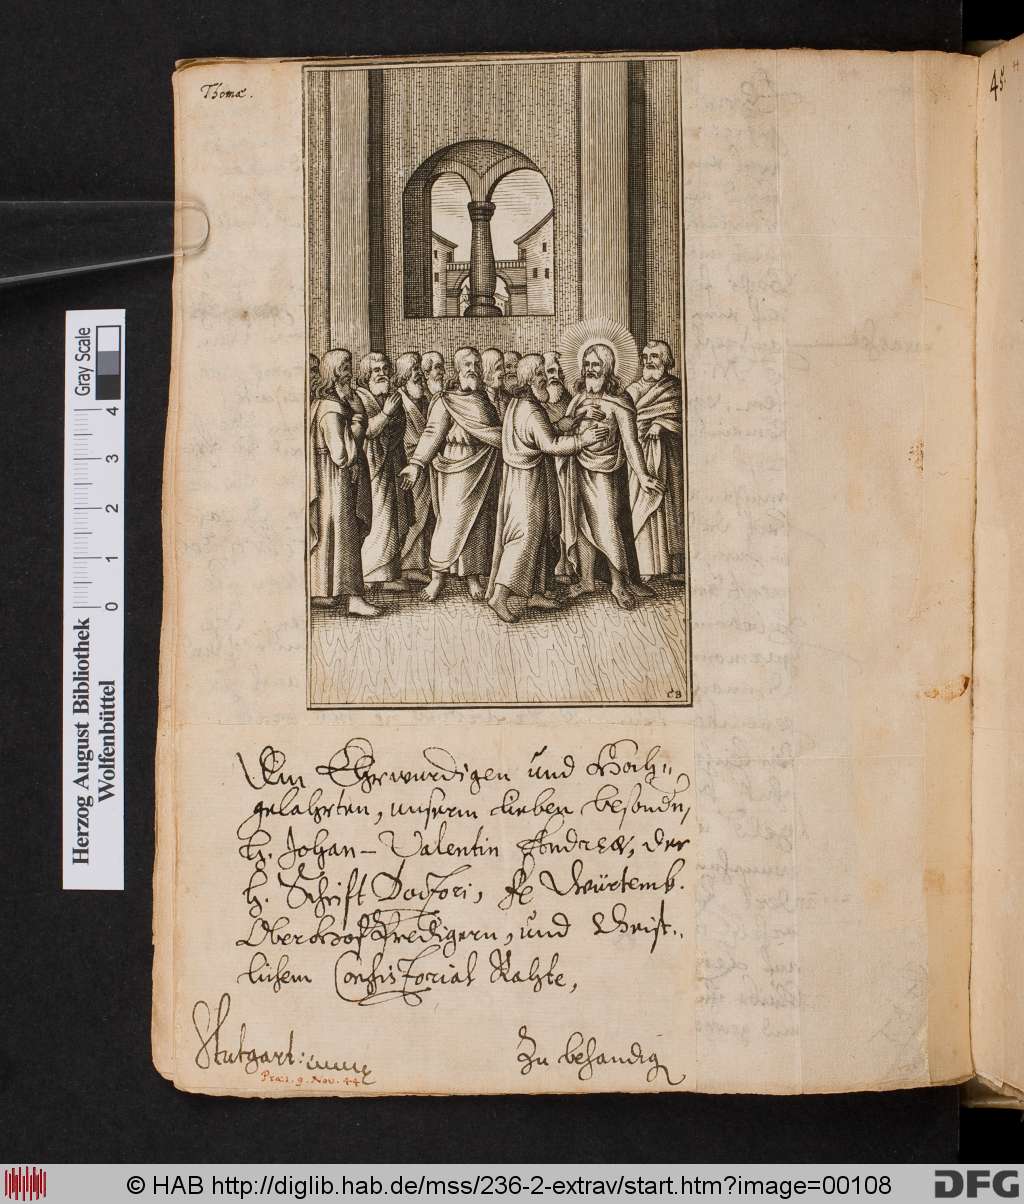 Thomæ.
45
CB
Dem Ehrwürdigen und Hoch-
gelahrten, unserm lieben besondn,
H. Johan-Valentin Andreæ, der
H. Schrift Doctori, fe Würtemb.
Oberhof Predigern, und Christ-
lichem Consistorial Rahte,
Stutgart:
Zu behandig
Præs. 9. Nov. 44
Gray Scale
0 1 2 3 4
Herzog August Bibliothek
Wolfenbüttel
© HAB http://diglib.hab.de/mss/236-2-extrav/start.htm?image=00108
DFG